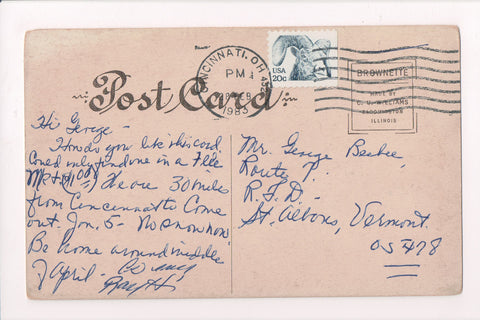 CINCINNATI, OH 452
PM
FEB
1983
USA
20c
Post Card
BROWNETTE
MADE BY
C. U. WILLIAMS
BLOOMINGTON
ILLINOIS
Hi George -
How do you like this card,
could only find one in a Flea
We are 30 miles
from Cincinnati Come
out. Jan. 5 - No snow now.
Be home around middle
of April -
Mr. George
Route 1.
R.F.D -
St. Albans, Vermont.
05478